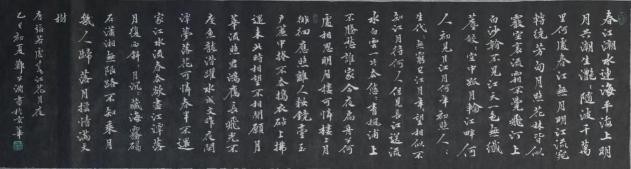 春江潮水連海平海上明
月共潮生灩灩隨波千萬
里何處春江無月明江流宛
轉繞芳甸月照花林皆似
霰空裏流霜不覺飛汀上
白沙看不見江天一色無纖
塵皎皎空中孤月輪江畔何
人初見月江月何年初照人人
生代代無窮已江月年年望相似不
知江月待何人但見長江送流
水白雲一片去悠悠青楓浦上
不勝愁誰家今夜扁舟子何
處相思明月樓可憐樓上月
徘徊應照離人妝鏡臺玉
戶簾中捲不去擣衣砧上拂
還來此時相望不相聞願逐月
華流照君鴻雁長飛光不
度魚龍潛躍水成文昨夜閒
潭夢落花可憐春半不還
家江水流春去欲盡江潭落
月復西斜斜月沉沉藏海霧碣
石瀟湘無限路不知乘月
幾人歸落月搖情滿江
樹
唐張若虛春江花月夜